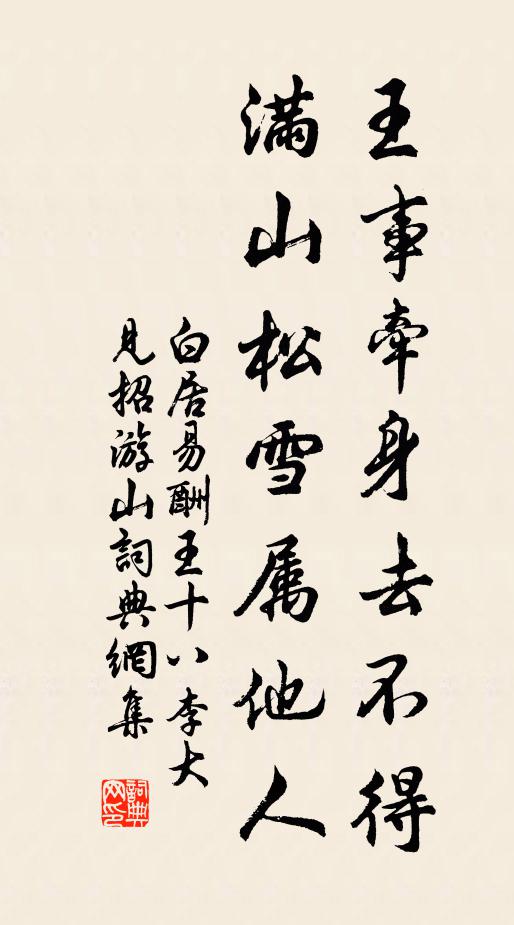 王事牽身去不得
滿山松雪属他人
白居易酬王十八李大
見招游山詞典網集
詞典网印